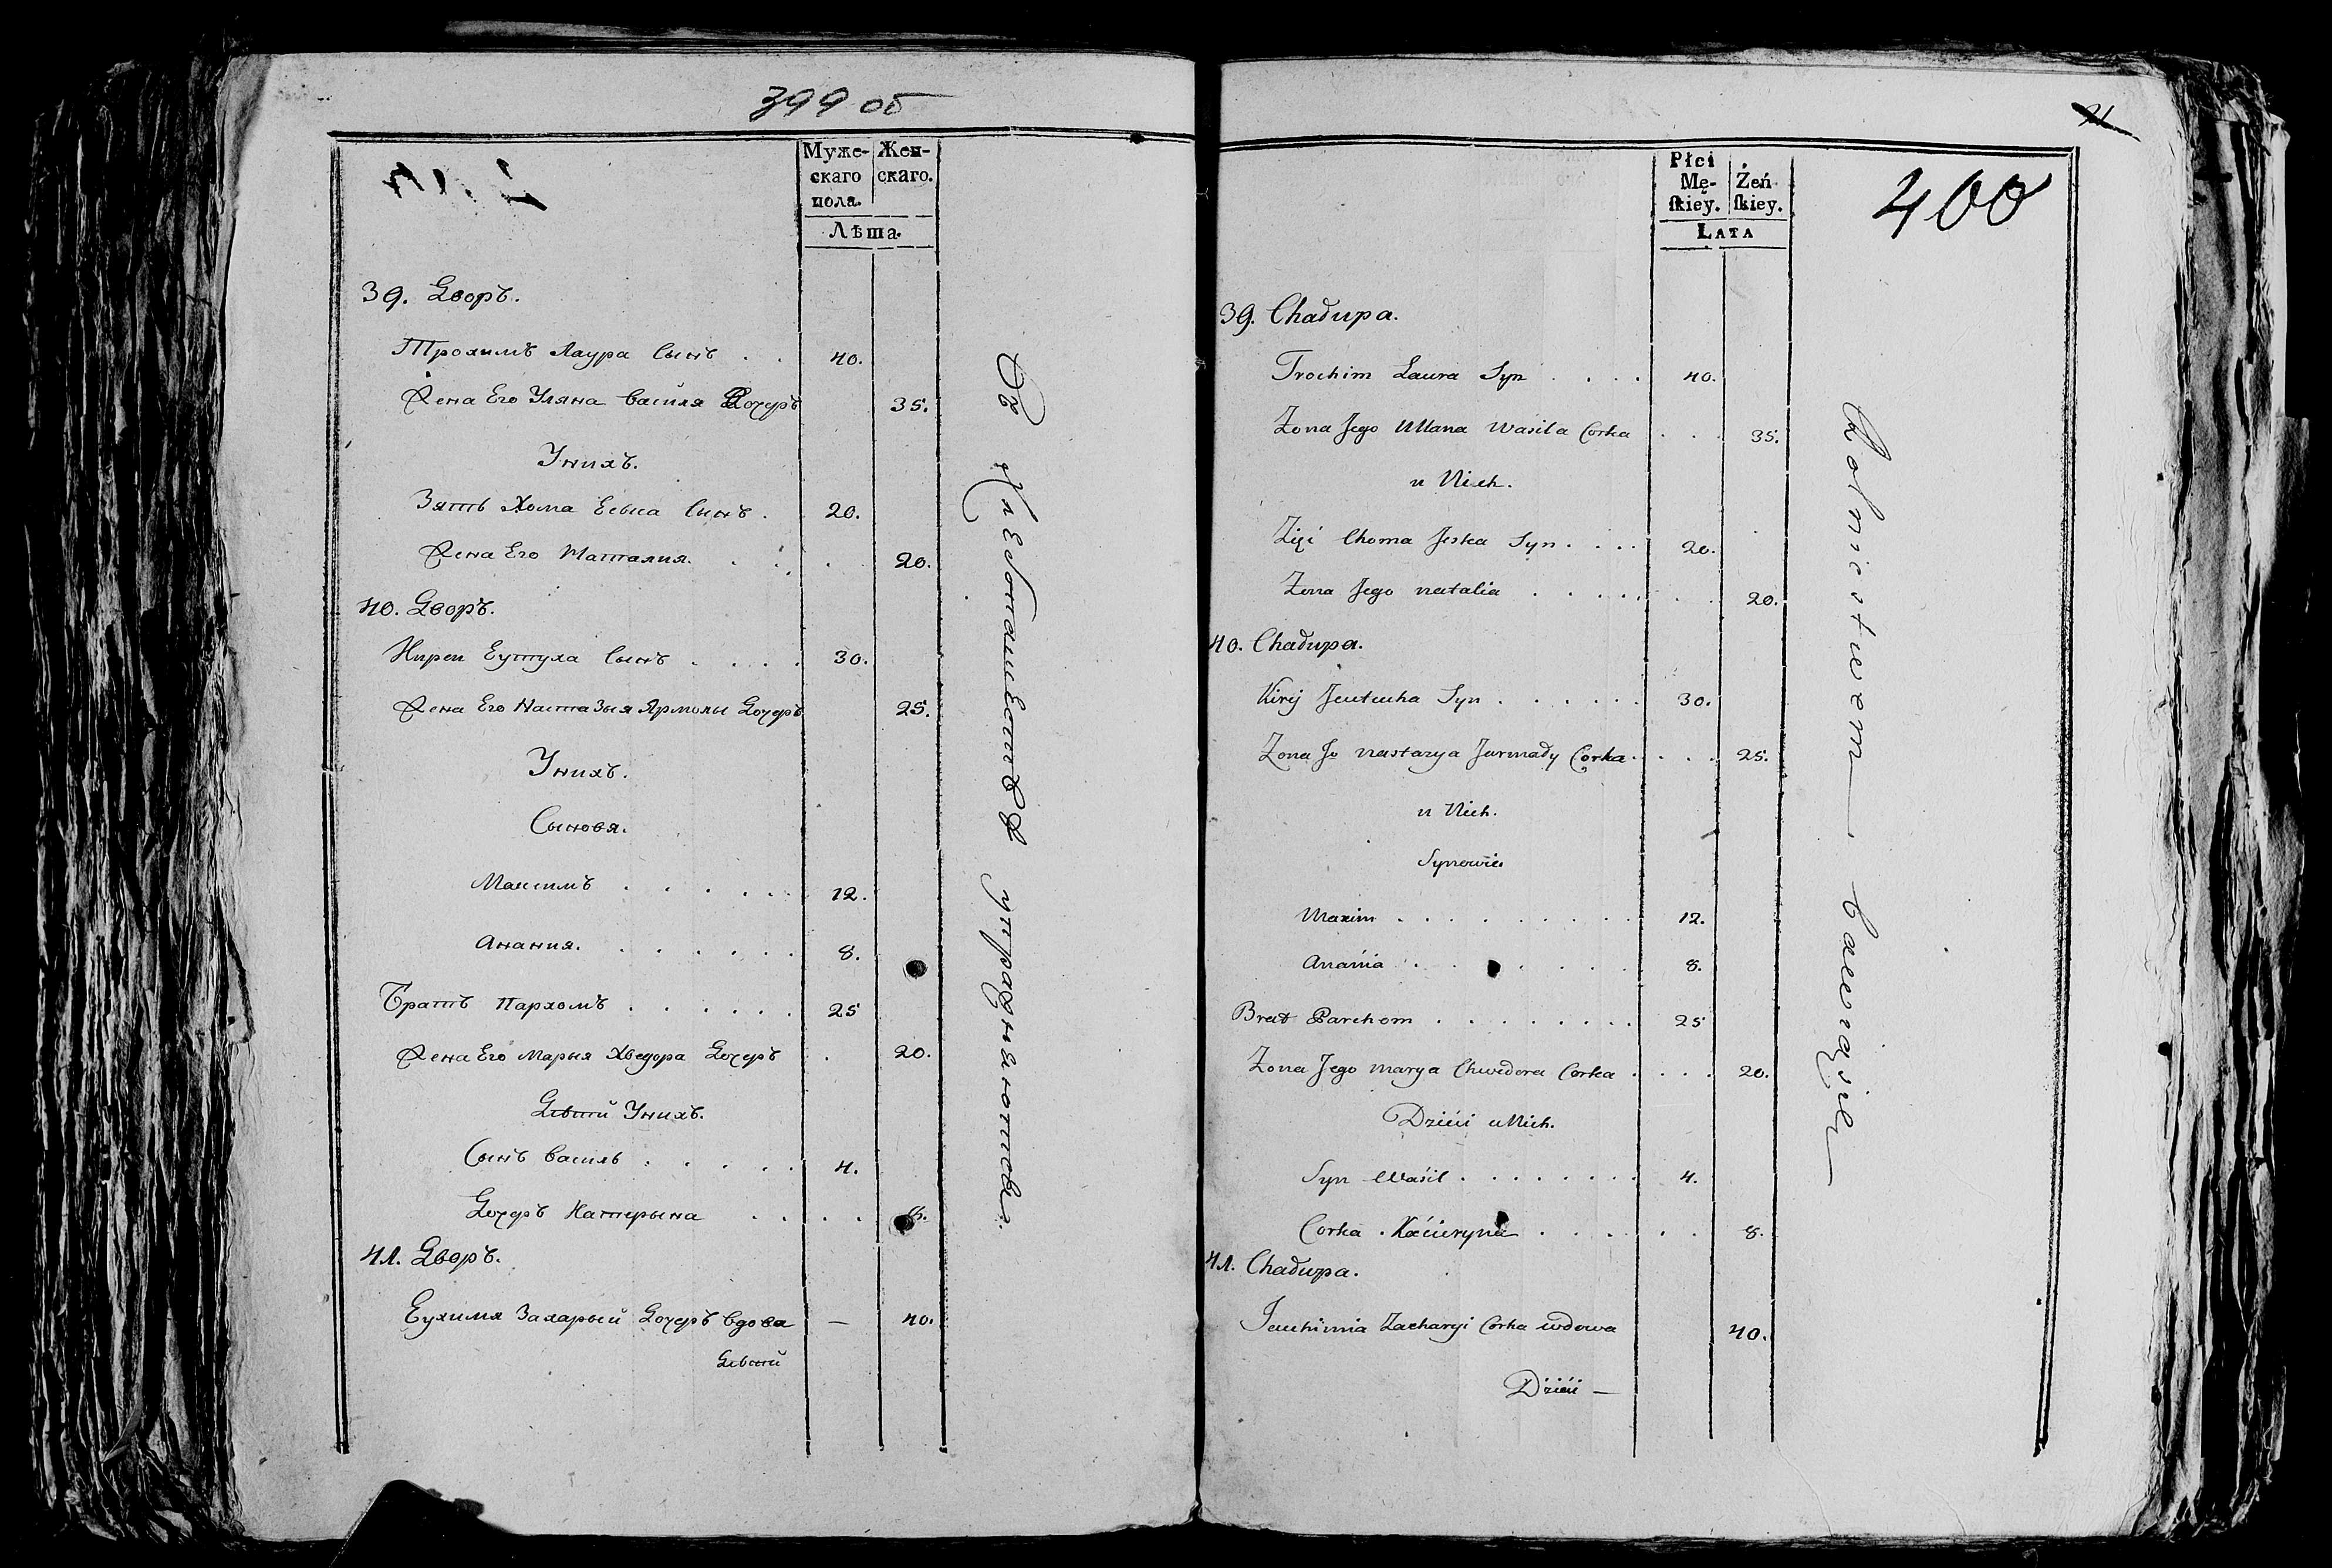 399 об
Муже-
скаго
пола.
Жен-
скаго.
Лѣта.
39. Дворъ.
Трохимъ Лаура Сынъ . . 40.
Жена Его Уляна Василя Дочеръ 35.
Унихъ.
Зять Хома Еська Сынъ . 20.
Жена Его Наталия. . . . 20.
40. Дворъ.
Кирей Еутуха Сынъ . . . . 30.
Жена Его Настазья Ярмолы Дочеръ 25.
Унихъ.
Сыновя.
Максимъ . . . . . 12.
Анания. . . . . . 8.
Братъ Пархомъ . . . . . 25
Жена Его Марыя Хведора Дочеръ . 20.
Дѣти Унихъ.
Сынъ Василь . . . . . 4.
Дочеръ Катерына . . . . 8.
41. Дворъ.
Еухимя Захарый Дочеръ вдова — 40.
Дѣти
Въ хлебопашествѣ упражняются.
21
400
Płci
Mę-
ſkiey.
Żeń
ſkiey.
Lata
39. Chałupa.
Trochim Laura Syn . . . . 40.
Zona Jego Ullana Wasila Corka . . . 35.
u Nich.
Zięć Choma Jeska Syn . . . . 20.
Zona Jego natalia . . . . . . . 20.
40. Chałupa.
Kirij Jeutucha Syn . . . . . . 30.
Zona Jo nastazya Jarmały Corka . . . . 25.
u Nich.
Synowie
Maxim . . . . . . . . . 12.
Anania . . . . . . . 8.
Brat Parchom . . . . . . . . 25
Zona Jego marya Chwedora Corka . . . . 20.
Dzieći u Nich.
Syn Waśil . . . . . . . . 4.
Corka . Kaćieryna . . . . . . 8.
41. Chałupa.
Jeuchimia Zacharyi Corka wdowa 40.
Dzieći —
Rolnictwem bawią się